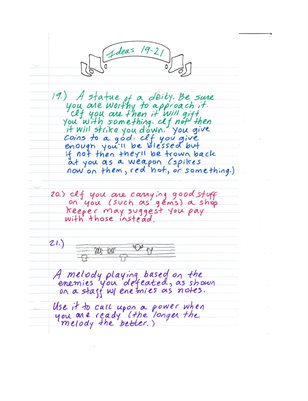 Ideas 19-21
19.) A statue of a deity. Be sure
you are worthy to approach it.
If you are then it will gift
you with something. If not then
it will strike you down. You give
coins to a god. If you give
enough you'll be blessed but
if not then they'll be trown back
at you as a weapon. (spikes
now on them, red hot, or something.)
20.) If you are carrying good stuff
on you (such as gems) a shop
keeper may suggest you pay
with those instead.
21.)
A melody playing based on the
enemies you defeated, as shown
on a staff w/ enemies as notes.
Use it to call upon a power when
you are ready (the longer the
melody the better.)